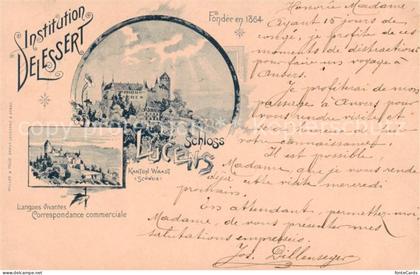 Institution
DELESSERT
Fondée en 1864
Schloss
LUCENS
KANTON WAADT
(SCHWEIZ)
Langues vivantes
Correspondance commerciale
Honorée Madame,
Ayant 15 jours de
congé, je profite de ces
moments de distractions
pour faire un voyage à
Anvers.
Je profiterai de mon
passage à Anvers pour
vous rendre visite et
votre connaissance.
Il est possible,
Madame, que je vous rende
déjà cette visite mercredi
prochain.
En attendant, permettez-moi,
Madame, de vous présenter mes
salutations empressées.
Jos. Dillenseger